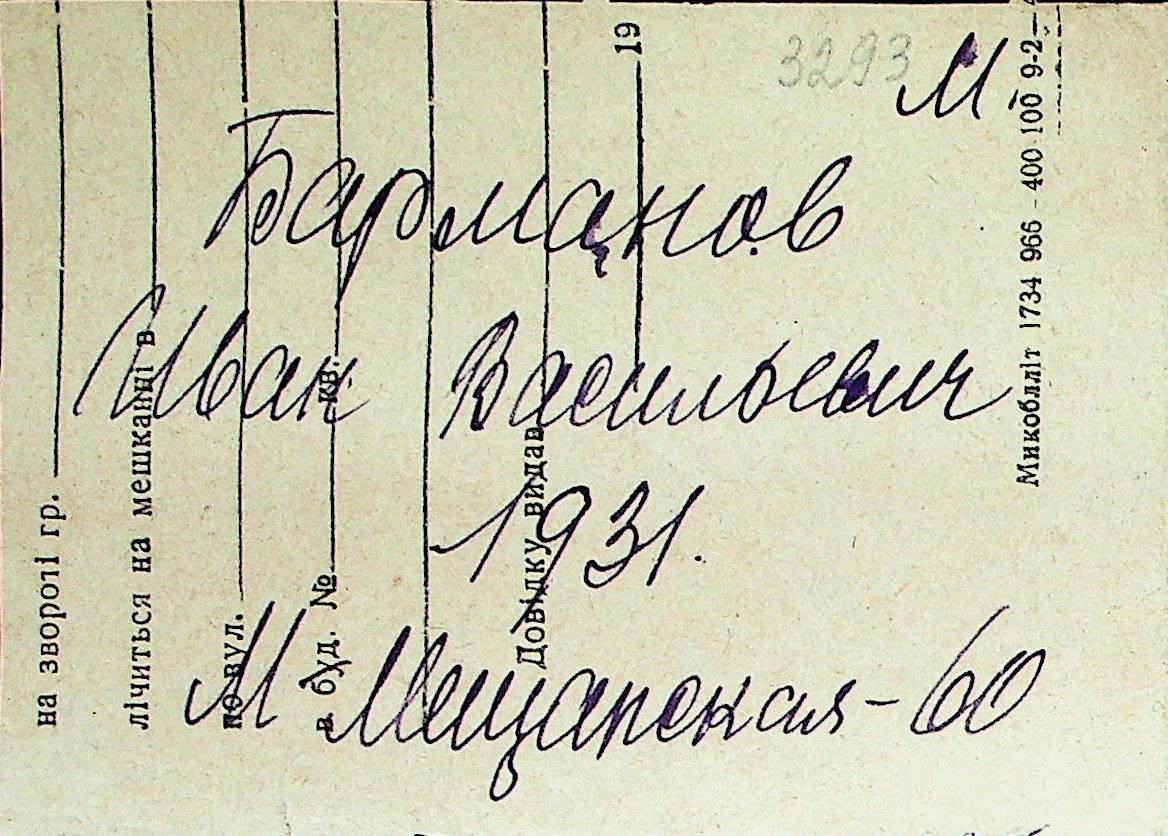 3293
М
Барманов
Иван Васильевич
1931.
М Мещанская-60
на звороті гр.
лічиться на мешканні в
по вул.
в буд. № кв.
Довідку видав
19
Микобліт 1734 966 - 400 100 9-2-